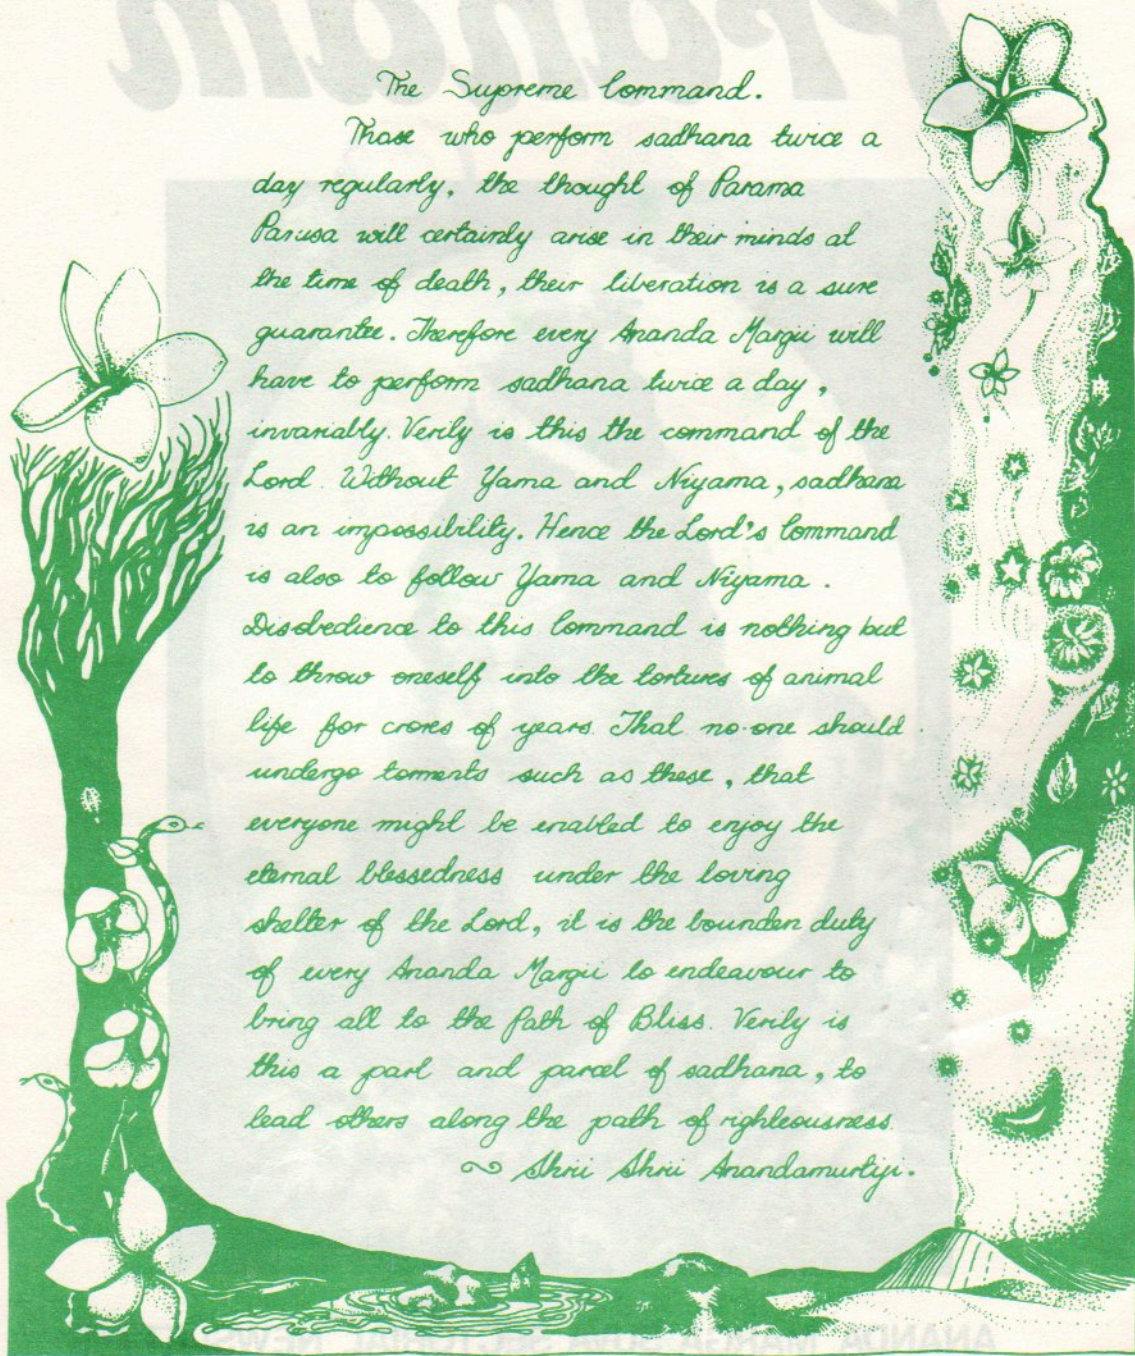 The Supreme Command.
Those who perform sadhana twice a
day regularly, the thought of Parama
Parusa will certainly arise in their minds at
the time of death, their liberation is a sure
guarantee. Therefore every Ananda Margii will
have to perform sadhana twice a day,
invariably. Verily is this the command of the
Lord. Without Yama and Niyama, sadhana
is an impossibility. Hence the Lord's Command
is also to follow Yama and Niyama.
Disobedience to this Command is nothing but
to throw oneself into the tortures of animal
life for crores of years. That no-one should
undergo torments such as these, that
everyone might be enabled to enjoy the
eternal blessedness under the loving
shelter of the Lord, it is the bounden duty
of every Ananda Margii to endeavour to
bring all to the Path of Bliss. Verily is
this a part and parcel of sadhana, to
lead others along the path of righteousness.
~ Shrii Shrii Anandamurtiji.